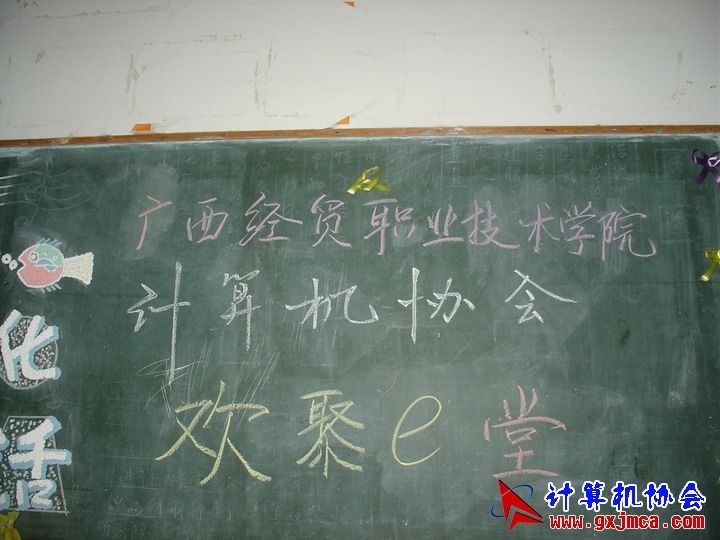 广西经贸职业技术学院
计算机协会
欢聚e堂
化
活
计算机协会
www.gxjmca.com